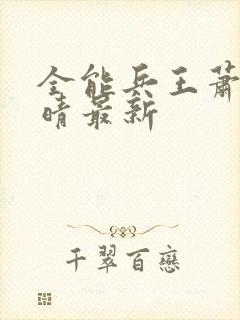 全能兵王萧
晴最新
千翠百戀